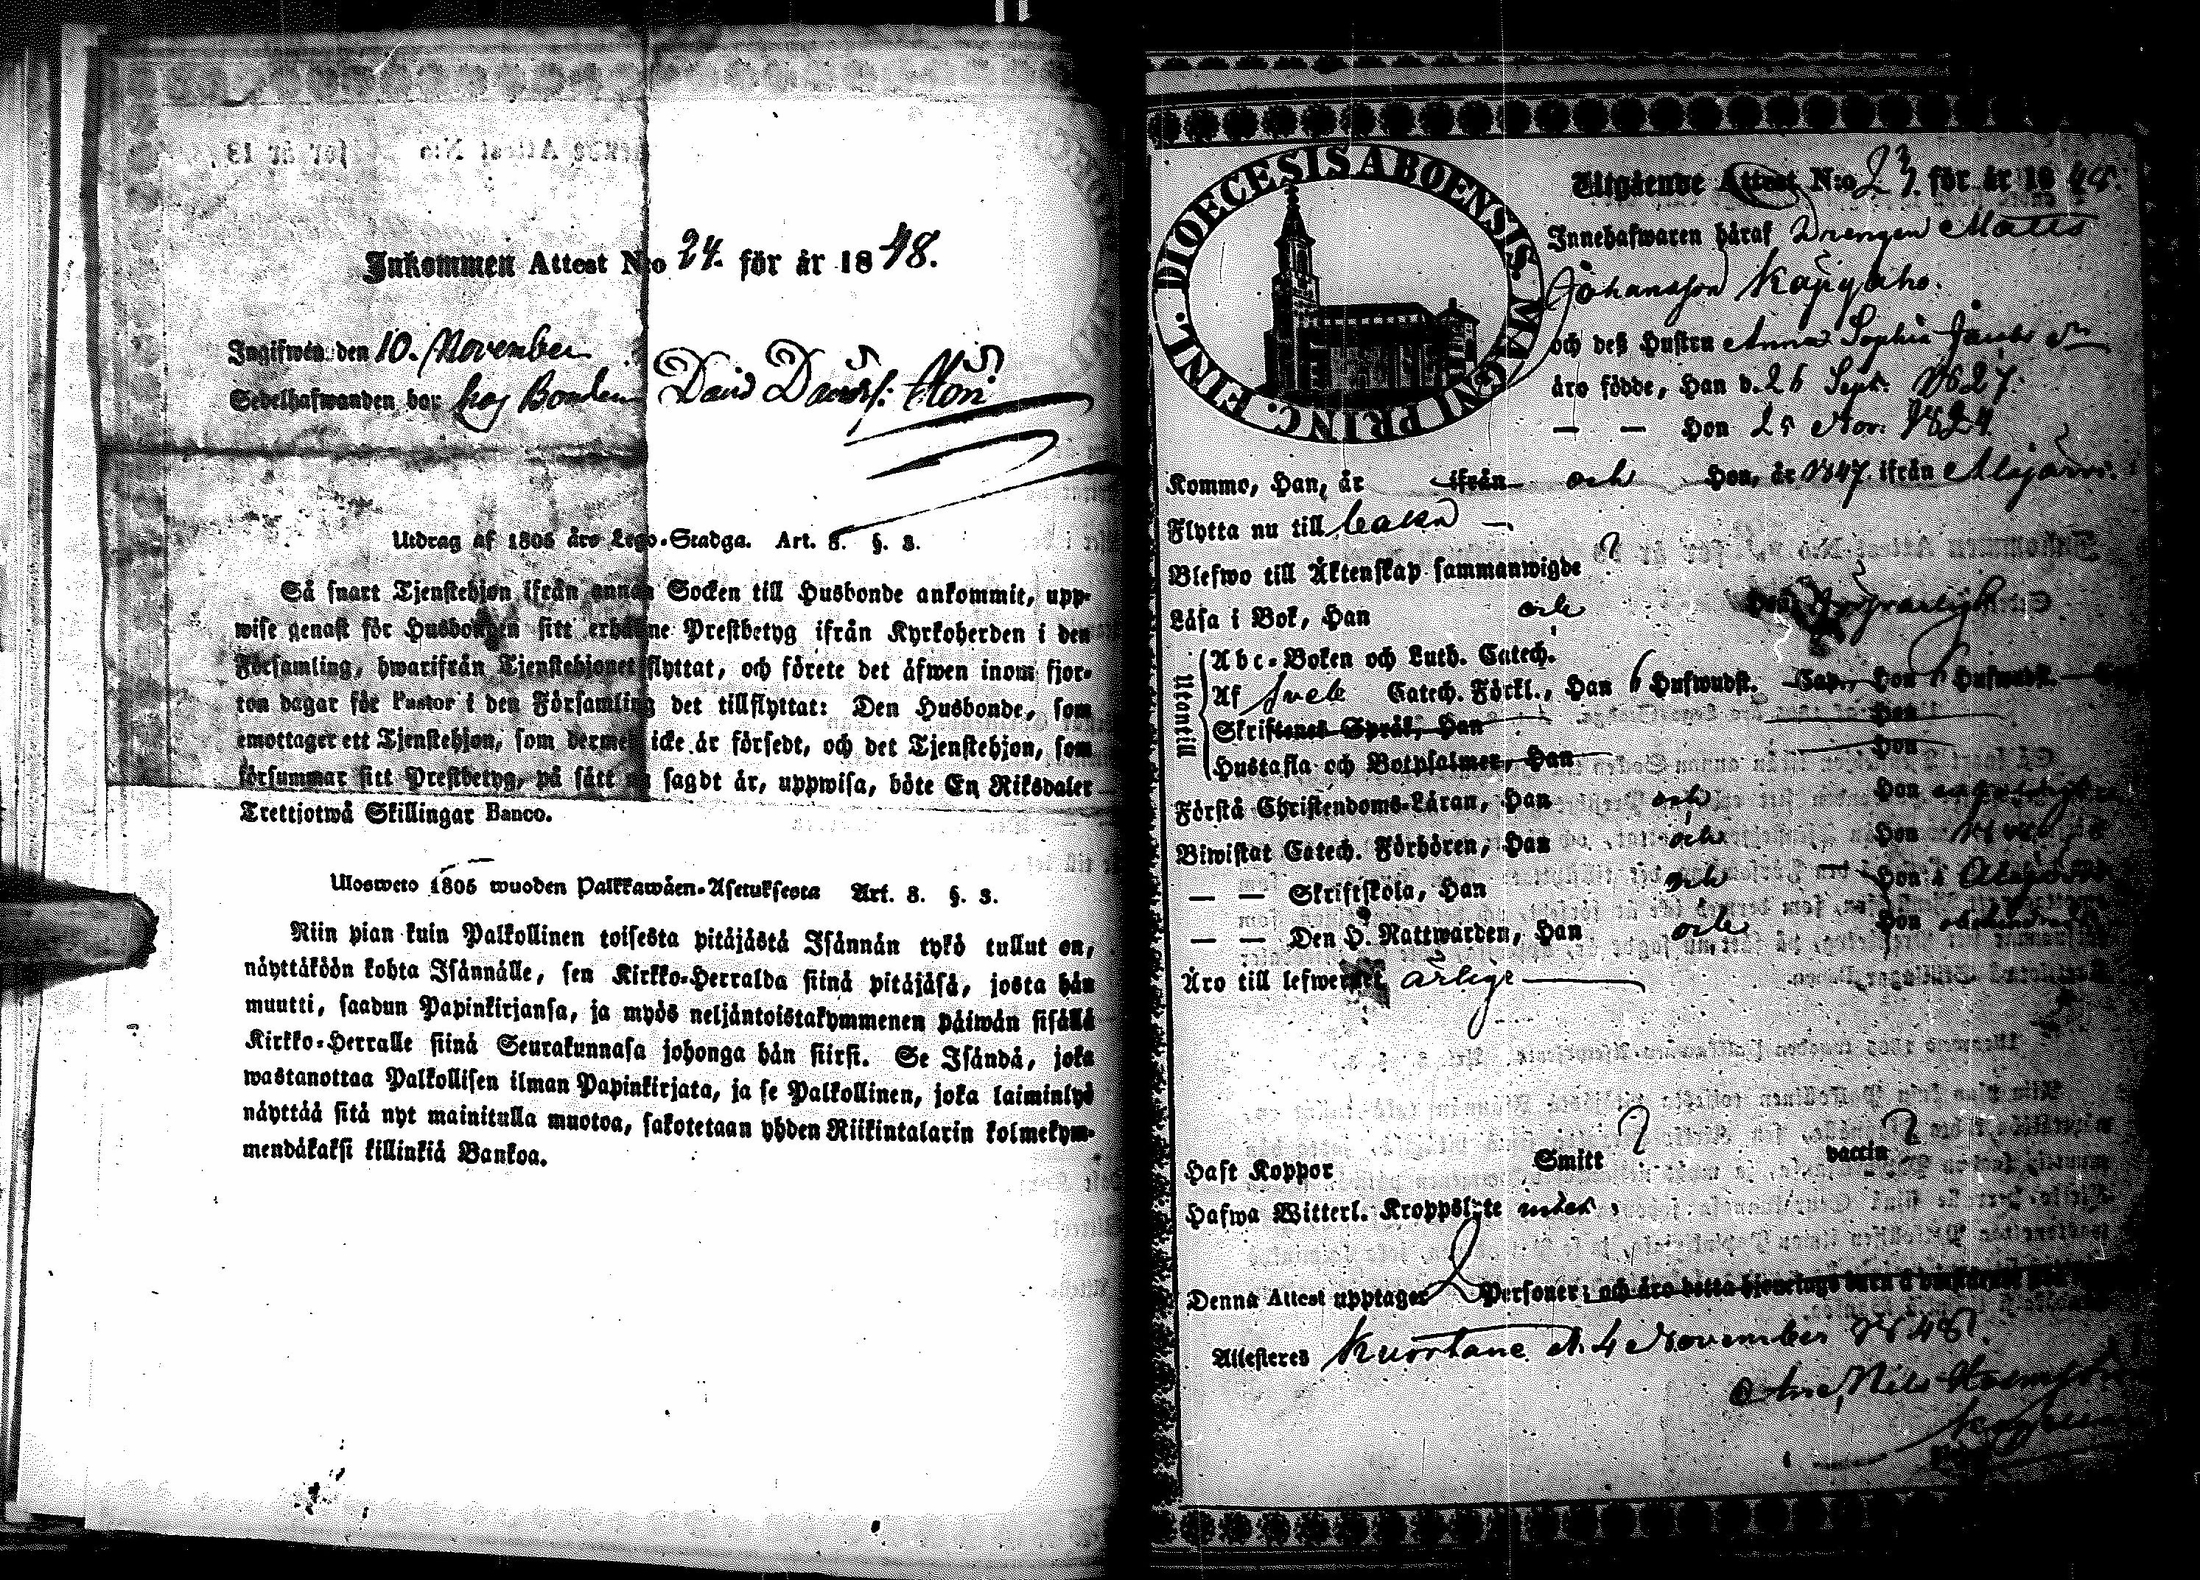 Inkommen Attest N:o 24. för år 1848.
Ingifwen den 10. November
Sedelhafwanden har hos Bonden David Davidss:
Utdrag af 1805 års Lego-Stadga. Art. 8. §. 3.
Så snart Tjenstehjon ifrån annan Socken till Husbonde ankommit, upp-
wise genast för Husbonden sitt erhållne Prestbetyg ifrån Kyrkoherden i den
Församling, hwarifrån Tjenstehjonet flyttat, och förete det äfwen inom fjor-
ton dagar för Pastor i den Församling det tillflyttat: Den Husbonde, som
emottager ett Tjenstehjon, som dermed icke är försedt, och det Tjenstehjon, som
försummar sitt Prestbetyg, på sätt nu sagdt är, uppwisa, böte En Riksdaler
Trettiotwå Skillingar Banco.
Ulosweto 1805 wuoden Palkkawäen-Asetuksesta Art. 8. §. 3.
Niin pian kuin Palkollinen toisesta pitäjästä Isännän tykö tullut on,
näyttäköön kohta Isännälle, sen Kirkko-Herralda siinä pitäjäsä, josta hän
muutti, saadun Papinkirjansa, ja myös neljäntoistakymmenen päiwän sisällä
Kirkko-Herralle siinä Seurakunnasa johonga hän siirsi. Se Isändä, joka
wastanottaa Palkollisen ilman Papinkirjata, ja se Palkollinen, joka laiminlyö
näyttää sitä nyt mainitulla muotoa, sakotetaan yhden Riikintalarin kolmekym-
mendäkaksi killinkiä Bankoa.
DIOECESIS ABOENSIS. MAGNI PRINC. FINL.
Utgående Attest N:o 23. för år 1848.
Innehafwaren häraf Drengen Matts
Johansson Käpyaho.
och deß Hustru Anna Sophia Jacobs dr
äro födde, Han d. 26 Sept. 1827.
— — Hon 25 Nov. 1824
Kommo, Han, år ifrån och Hon, år 1847 ifrån Alajärvi.
Flytta nu till
Blefwo till Äktenskap sammanwigde ?
Läsa i Bok, Han och Hon
Utantill
Abc-Boken och Luth. Catech.
Af Sveb Catech. Förkl., Han 6 Hufwudst. Cap., Hon 6 Hufwudst.
Skriftenes Språk, Han Hon
Hustafla och Botpsalmer, Han Hon
Förstå Christendoms-Läran, Han och Hon
Biwistat Catech. Förhören, Han och Hon
— — Skriftskola, Han och Hon i Alajärvi
— — Den H. Nattwarden, Han och Hon
Äro till lefwernet ärlige
Haft Koppor Smitt ? vaccin ?
Hafwa Witterl. Kroppslyte intet
Denna Attest upptager 2 Personer; och äro detta hjonelags barn
Attesteres Kuortane d. 4 November 1848.
Nils